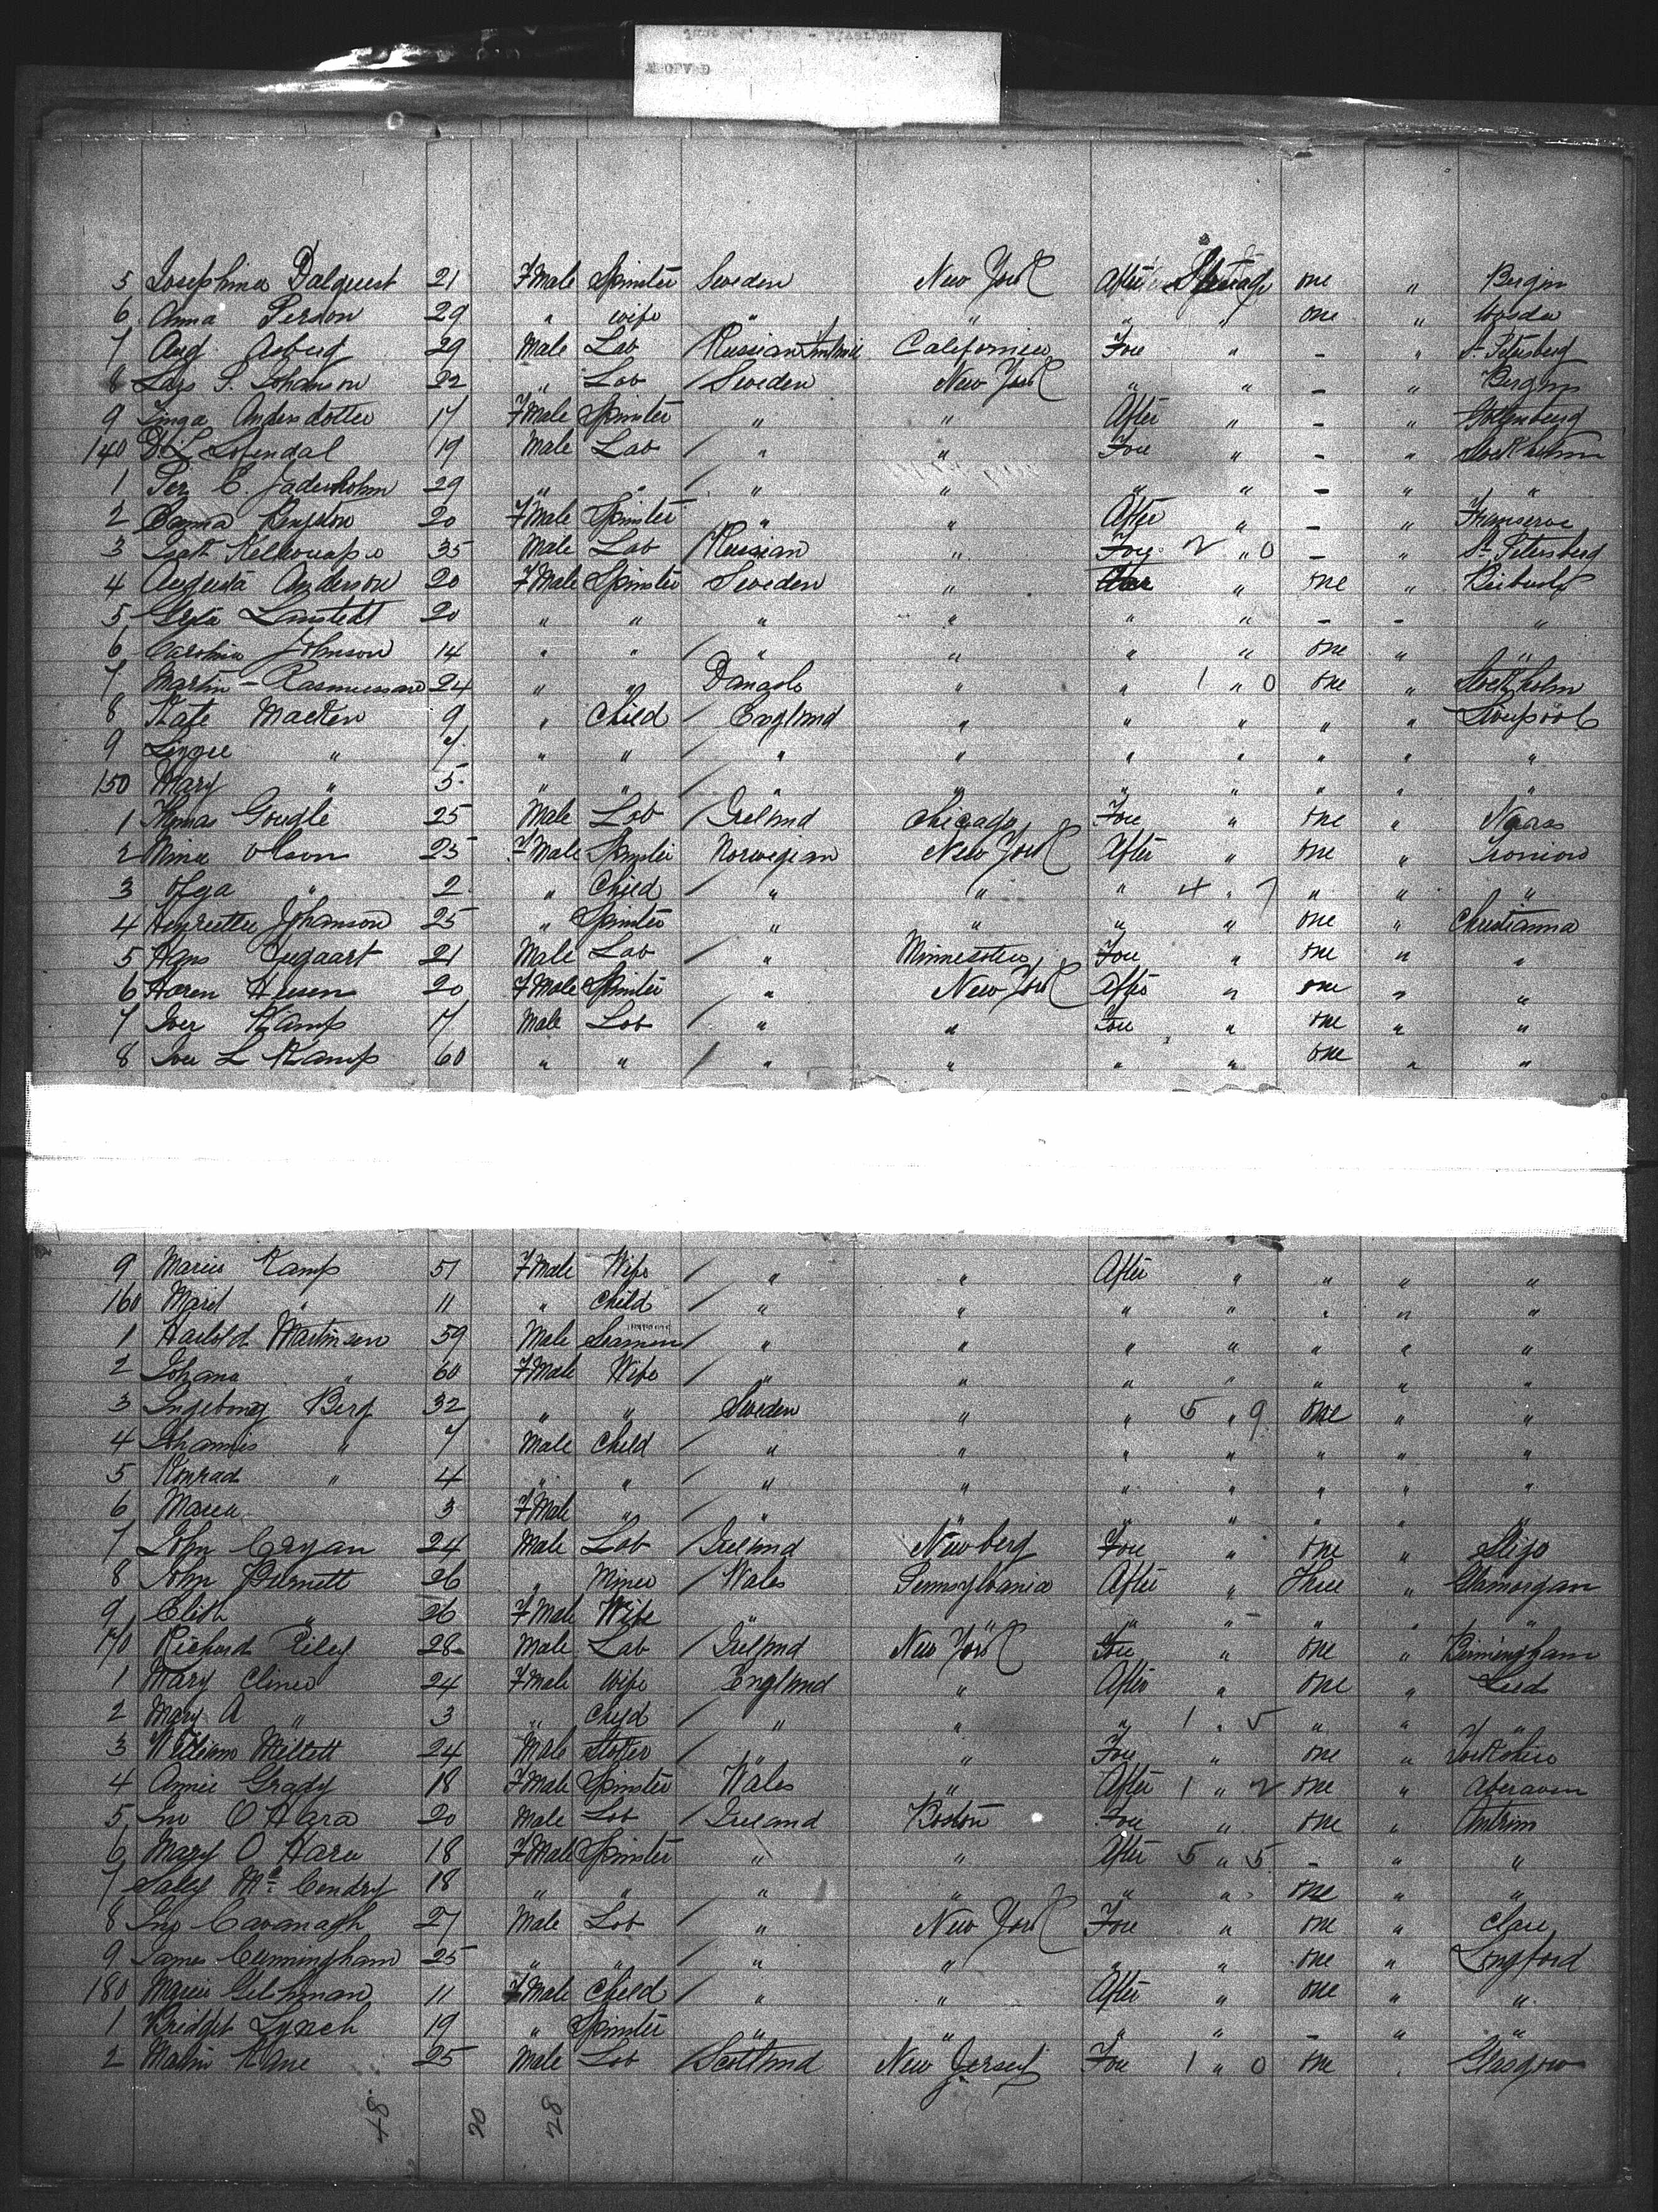 5 Josephina Dalquest 21 F Male Spinster Sweden New York After Steerage one " Bergin
6 Anna Person 29 " wife " " " " one "
7 Aug. 29 Male Lab Russian California Fore " - " St Petersberg
8 Lars P. Johanson 22 " Lab / Sweden New York " " - "
9 Andersdotter 17 F Male Spinster " " After " - " Gothenburg
140 19 Male Lab / " " Fore " - " Stockholm
1 Per C. Jaderholm 29 " " / " " " " - " "
2 20 F Male Spinster " " After " - "
3 35 Male Lab / Russian " Fore 2 " 0 - " St Petersberg
4 Augusta Anderson 20 F Male Spinster Sweden " " one "
5 20 " " " " " " - - "
6 Carolina Johnson 14 " " / " " " " one " "
7 Martin - Rasmussen 24 " " " " 1 " 0 one " Stockholm
8 Kate Macken 9 " Child / England " " " " " Liverpool
9 Lizzie " 7 " " / " " " " " " "
150 Mary " 5 " " / " " " " " " "
1 Thomas 25 Male Lab / Ireland Chicago Fore " one " Naas
2 Nina Olson 25 F Male Spinster Norwegian New York After " one "
3 Olga " 2 " Child / " " " 4 " 7 " " "
4 Johanson 25 " Spinster " " " " one " Christianna
5 Hans 21 Male Lab / " Minnesota Fore " one " "
6 Karen 20 F Male Spinster " New York After " one " "
7 Iver Kamp 17 Male Lab / " " Fore " one " "
8 L Kamp 60 " " / " " " " one " "
9 Marie Kamp 51 F Male Wife / " " After " " " "
160 " 11 " Child / " " " " " " "
1 Harold Martinsen 59 Male Seaman / " " " " " " "
2 Johana " 60 F Male Wife / " " " " " " "
3 Ingeborg Berg 32 " " Sweden " " 5 " 9 one " "
4 Johannis " 7 Male Child / " " " " " " "
5 Konrad " 4 " " / " " " " " " "
6 Maria 3 F Male " / " " " " " " "
7 John Cryan 24 Male Lab / Ireland Newberg Fore " one " Sligo
8 John 26 " Miner / Wales Pennsylvania After " Three " Glamorgan
9 " 26 F Male Wife " " " " " " "
170 Richard Riley 28 Male Lab / Ireland New York Fore " one " Birmingham
1 Mary Cline 24 F Male Wife England " After " one " Leeds
2 Mary A " 3 " Child / " " " 1 " 5 " " "
3 William Millett 24 Male / " " Fore " one " Yorkshire
4 Annie Grady 18 F Male Spinster Wales " After 1 " 2 one " Aberavon
5 Jno O Hara 20 Male Lab / Ireland Boston Fore " one " Antrim
6 Mary O Hara 18 F Male Spinster " " After 5 " 5 - " "
7 Sally Mc Cendry 18 " " " " " " one " "
8 Jno Cavanagh 27 Male Lab / " New York Fore " one " Clare
9 James Cunningham 25 " " / " " " " one " Longford
180 11 F Male Child / " " After " one " "
1 Bridget Lynch 19 " Spinster " " " " - " "
2 Martin Kane 25 Male Lab / Scotland New Jersey Fore 1 " 0 one " Glasgow
48 20 28